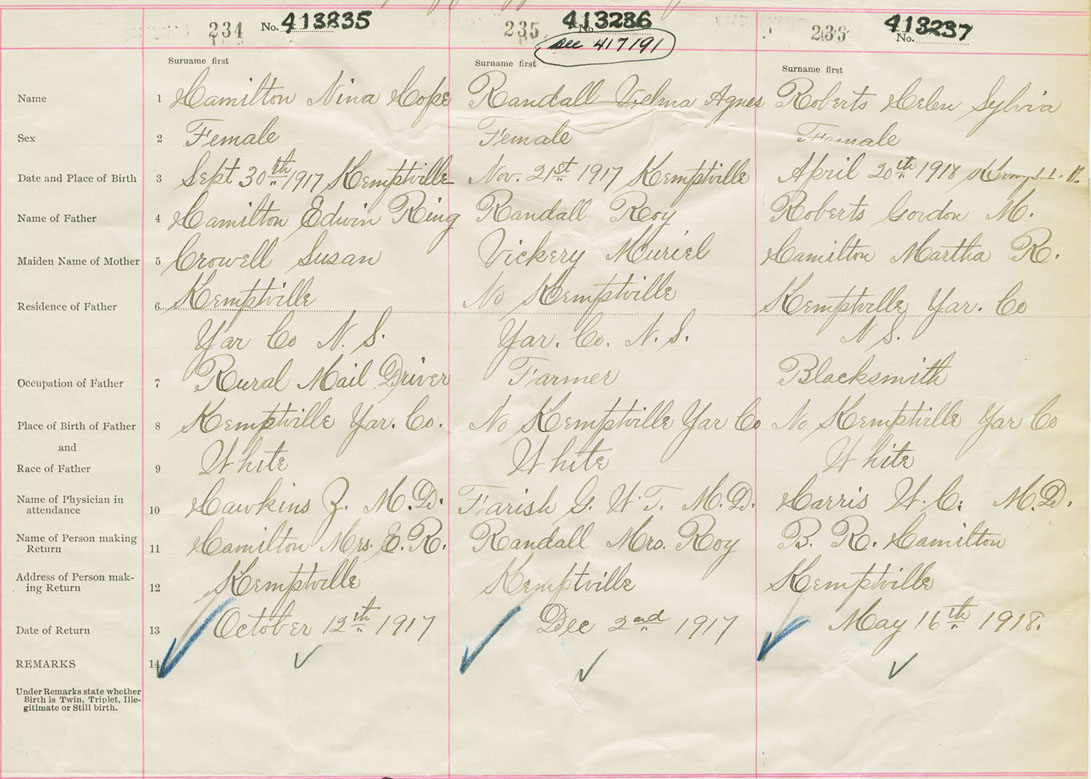 234 No. 413835 235 No. 413286 236 No. 413237
see 417191
Surname first Surname first Surname first
Name 1 Hamilton Nina Hope Randall Velma Agnes Roberts Helen Sylvia
Sex 2 Female Female Female
Date and Place of Birth 3 Sept 30th 1917 Kemptville Nov. 21st 1917 Kemptville April 20th 1918
Name of Father 4 Hamilton Edwin Ring Randall Roy Roberts Gordon M.
Maiden Name of Mother 5 Crowell Susan Vickery Muriel Hamilton Martha R.
Residence of Father 6 Kemptville No Kemptville Kemptville Yar. Co
Yar Co N. S. Yar. Co. N. S. N S.
Occupation of Father 7 Rural Mail Driver Farmer Blacksmith
Place of Birth of Father 8 Kemptville Yar. Co. No Kemptville Yar Co No Kemptville Yar Co
and
Race of Father 9 White White White
Name of Physician in
attendance 10 Hawkins Z. M.D. Farish G. W. T. M.D. Harris W. C. M.D.
Name of Person making
Return 11 Hamilton Mrs. E. R. Randall Mrs. Roy B. R. Hamilton
Address of Person mak-
ing Return 12 Kemptville Kemptville Kemptville
Date of Return 13 October 12th 1917 Dec 2nd 1917 May 16th 1918.
REMARKS 14
Under Remarks state whether
Birth is Twin, Triplet, Ille-
gitimate or Still birth.